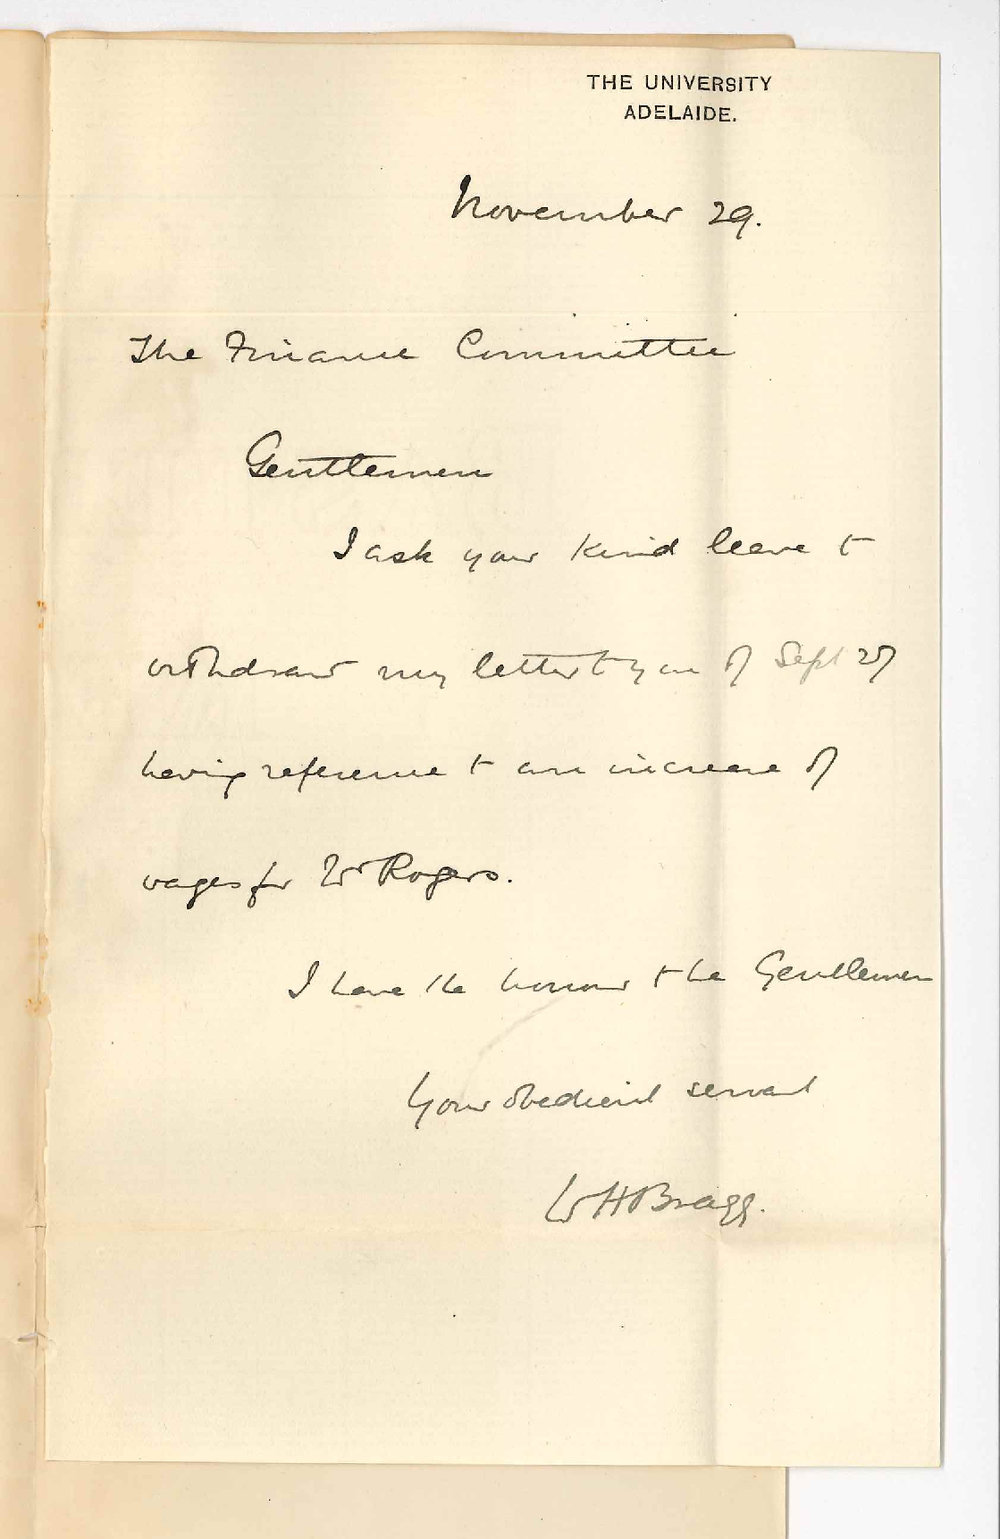 THE UNIVERSITY
ADELAIDE.
November 29.
The Finance Committee
Gentlemen
I ask your kind leave to
withdraw my letter to you of Sept 27
having reference to an increase of
wages for Mr Rogers.
I have the honour to be Gentlemen
Your obedient servant
W H Bragg.